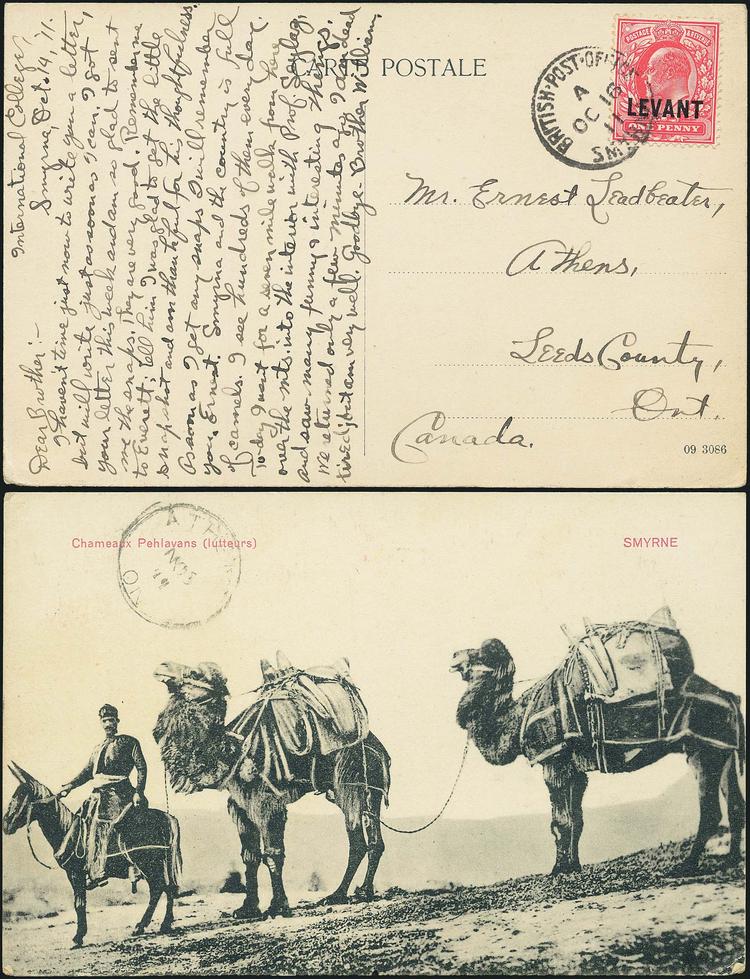 International College,
Smyrna, Oct. 14, '11.
Dear Brother:-
I haven't time just now to write you a letter,
but will write just as soon as I can. I got
your letter this week and am so glad to sent
me the snaps. They are very good. Remember me
to Everett; tell him I was glad to get the little
snapshot and am thankful for his thoughtfulness.
As soon as I get any snaps I will remember
you, Ernest. Smyrna and the country is full
of camels. I see hundreds of them every day.
Today I went for a seven mile walk from here
over the mts. into the interior with Prof.
and saw many funny & interesting things.
I've returned only a few minutes ago dead
tired; but am very well. Goodbye - Brother William.
CARTE POSTALE
BRITISH·POST·OFFICE
A
OC 16
11
LEVANT
POSTAGE & REVENUE
ONE PENNY
Mr. Ernest Leadbeater,
Athens,
Leeds County,
Ont.
Canada.
09 3086
Chameaux Pehlavans (lutteurs)
SMYRNE
ONT